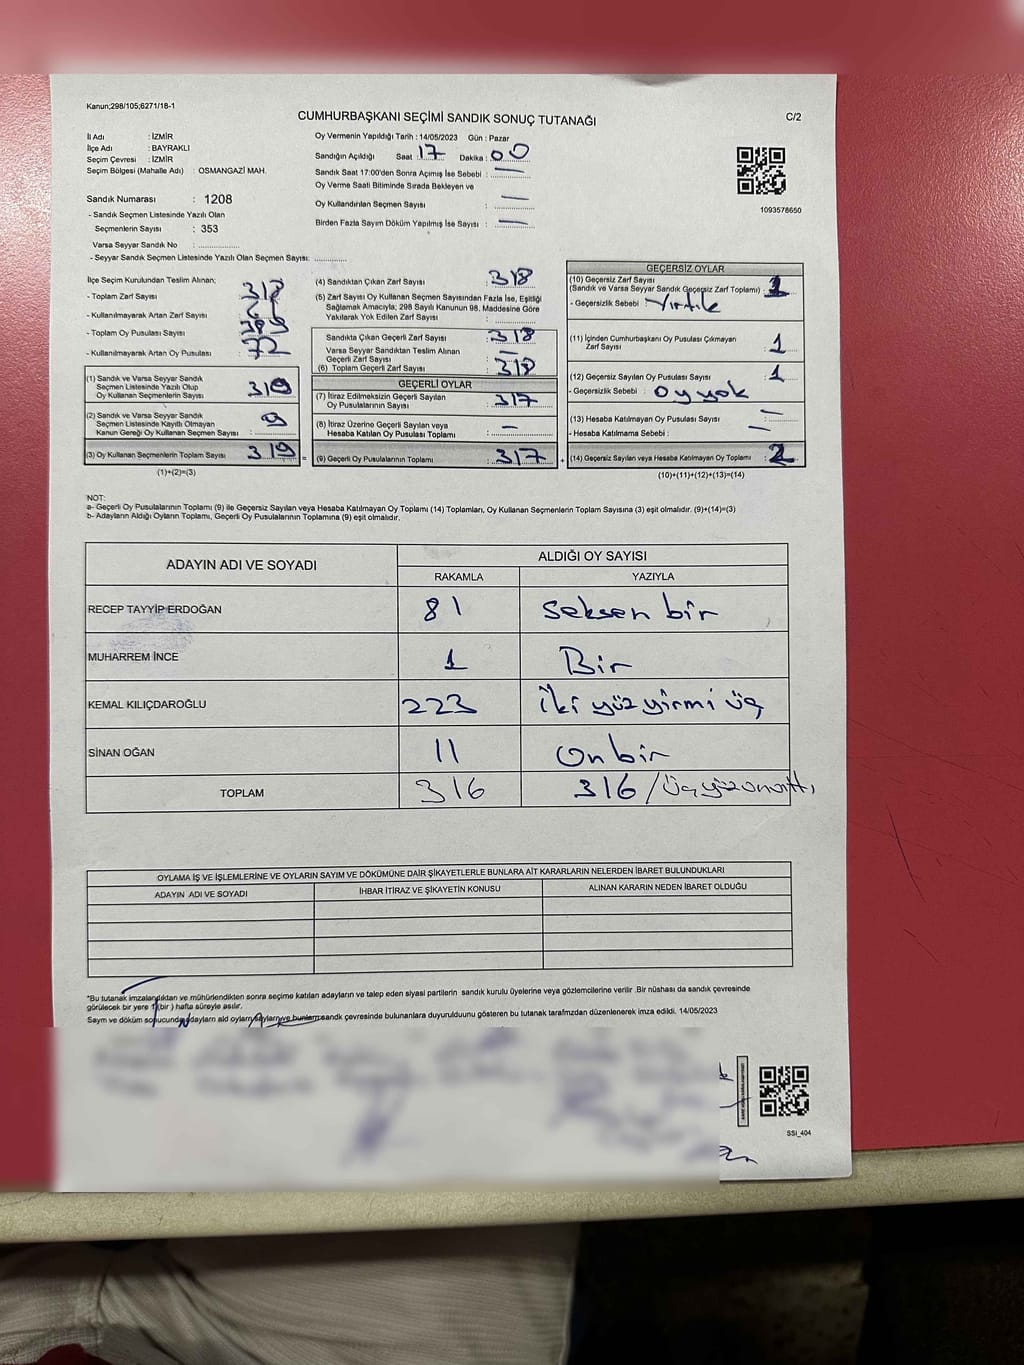 Kanun;298/105;6271/18-1
CUMHURBAŞKANI SEÇİMİ SANDIK SONUÇ TUTANAĞI
C/2
İl Adı : İZMİR
İlçe Adı : BAYRAKLI
Seçim Çevresi : İZMİR
Seçim Bölgesi (Mahalle Adı) : OSMANGAZİ MAH.
Sandık Numarası : 1208
- Sandık Seçmen Listesinde Yazılı Olan
Seçmenlerin Sayısı : 353
Varsa Seyyar Sandık No : ............
- Seyyar Sandık Seçmen Listesinde Yazılı Olan Seçmen Sayısı: ............
Oy Vermenin Yapıldığı Tarih : 14/05/2023 Gün : Pazar
Sandığın Açıldığı Saat : 17 Dakika : 00
Sandık Saat 17:00'den Sonra Açımış İse Sebebi : —
Oy Verme Saati Bitiminde Sırada Bekleyen ve
Oy Kullandırılan Seçmen Sayısı : —
Birden Fazla Sayım Döküm Yapılmış İse Sayısı : —
1093578650
İlçe Seçim Kurulundan Teslim Alınan;
- Toplam Zarf Sayısı
- Kullanılmayarak Artan Zarf Sayısı
- Toplam Oy Pusulası Sayısı
- Kullanılmayarak Artan Oy Pusulası : 72
(1) Sandık ve Varsa Seyyar Sandık
Seçmen Listesinde Yazılı Olup
Oy Kullanan Seçmenlerin Sayısı
(2) Sandık ve Varsa Seyyar Sandık
Seçmen Listesinde Kayıtlı Olmayan
Kanun Gereği Oy Kullanan Seçmen Sayısı :
(3) Oy Kullanan Seçmenlerin Toplam Sayısı : 319
(1)+(2)=(3)
(4) Sandıktan Çıkan Zarf Sayısı : 318
(5) Zarf Sayısı Oy Kullanan Seçmen Sayısından Fazla İse, Eşitliği
Sağlamak Amacıyla; 298 Sayılı Kanunun 98. Maddesine Göre
Yakılarak Yok Edilen Zarf Sayısı :
Sandıkta Çıkan Geçerli Zarf Sayısı : 318
Varsa Seyyar Sandıktan Teslim Alınan
Geçerli Zarf Sayısı : —
(6) Toplam Geçerli Zarf Sayısı : 318
GEÇERLİ OYLAR
(7) İtiraz Edilmeksizin Geçerli Sayılan
Oy Pusulalarının Sayısı : 317
(8) İtiraz Üzerine Geçerli Sayılan veya
Hesaba Katılan Oy Pusulası Toplamı : —
(9) Geçerli Oy Pusulalarının Toplamı : 317
GEÇERSİZ OYLAR
(10) Geçersiz Zarf Sayısı
(Sandık ve Varsa Seyyar Sandık Geçersiz Zarf Toplamı) : 1
- Geçersizlik Sebebi : Yırtık
(11) İçinden Cumhurbaşkanı Oy Pusulası Çıkmayan
Zarf Sayısı : 1
(12) Geçersiz Sayılan Oy Pusulası Sayısı : 1
- Geçersizlik Sebebi : Oy yok
(13) Hesaba Katılmayan Oy Pusulası Sayısı : —
- Hesaba Katılmama Sebebi : —
(14) Geçersiz Sayılan veya Hesaba Katılmayan Oy Toplamı : 2
(10)+(11)+(12)+(13)=(14)
NOT:
a- Geçerli Oy Pusulalarının Toplamı (9) ile Geçersiz Sayılan veya Hesaba Katılmayan Oy Toplamı (14) Toplamları, Oy Kullanan Seçmenlerin Toplam Sayısına (3) eşit olmalıdır. (9)+(14)=(3)
b- Adayların Aldığı Oyların Toplamı, Geçerli Oy Pusulalarının Toplamına (9) eşit olmalıdır.
ADAYIN ADI VE SOYADI ALDIĞI OY SAYISI
RAKAMLA YAZIYLA
RECEP TAYYİP ERDOĞAN 81 Seksen bir
MUHARREM İNCE 1 Bir
KEMAL KILIÇDAROĞLU 223 iki yüz yirmi üç
SİNAN OĞAN 11 On bir
TOPLAM 316 316 / Üçyüzonaltı
OYLAMA İŞ VE İŞLEMLERİNE VE OYLARIN SAYIM VE DÖKÜMÜNE DAİR ŞİKAYETLERLE BUNLARA AİT KARARLARIN NELERDEN İBARET BULUNDUKLARI
ADAYIN ADI VE SOYADI İHBAR İTİRAZ VE ŞİKAYETİN KONUSU ALINAN KARARIN NEDEN İBARET OLDUĞU
*Bu tutanak imzalandıktan ve mühürlendikten sonra seçime katılan adayların ve talep eden siyasi partilerin sandık kurulu üyelerine veya gözlemcilerine verilir .Bir nüshası da sandık çevresinde
görülecek bir yere 1 (bir ) hafta süreyle asılır.
Sayım ve döküm sonucunda adayların aldı oyların sandık çevresinde bulunanlara duyurulduunu gösteren bu tutanak tarafmzdan düzenlenerek imza edildi. 14/05/2023
SSI_404